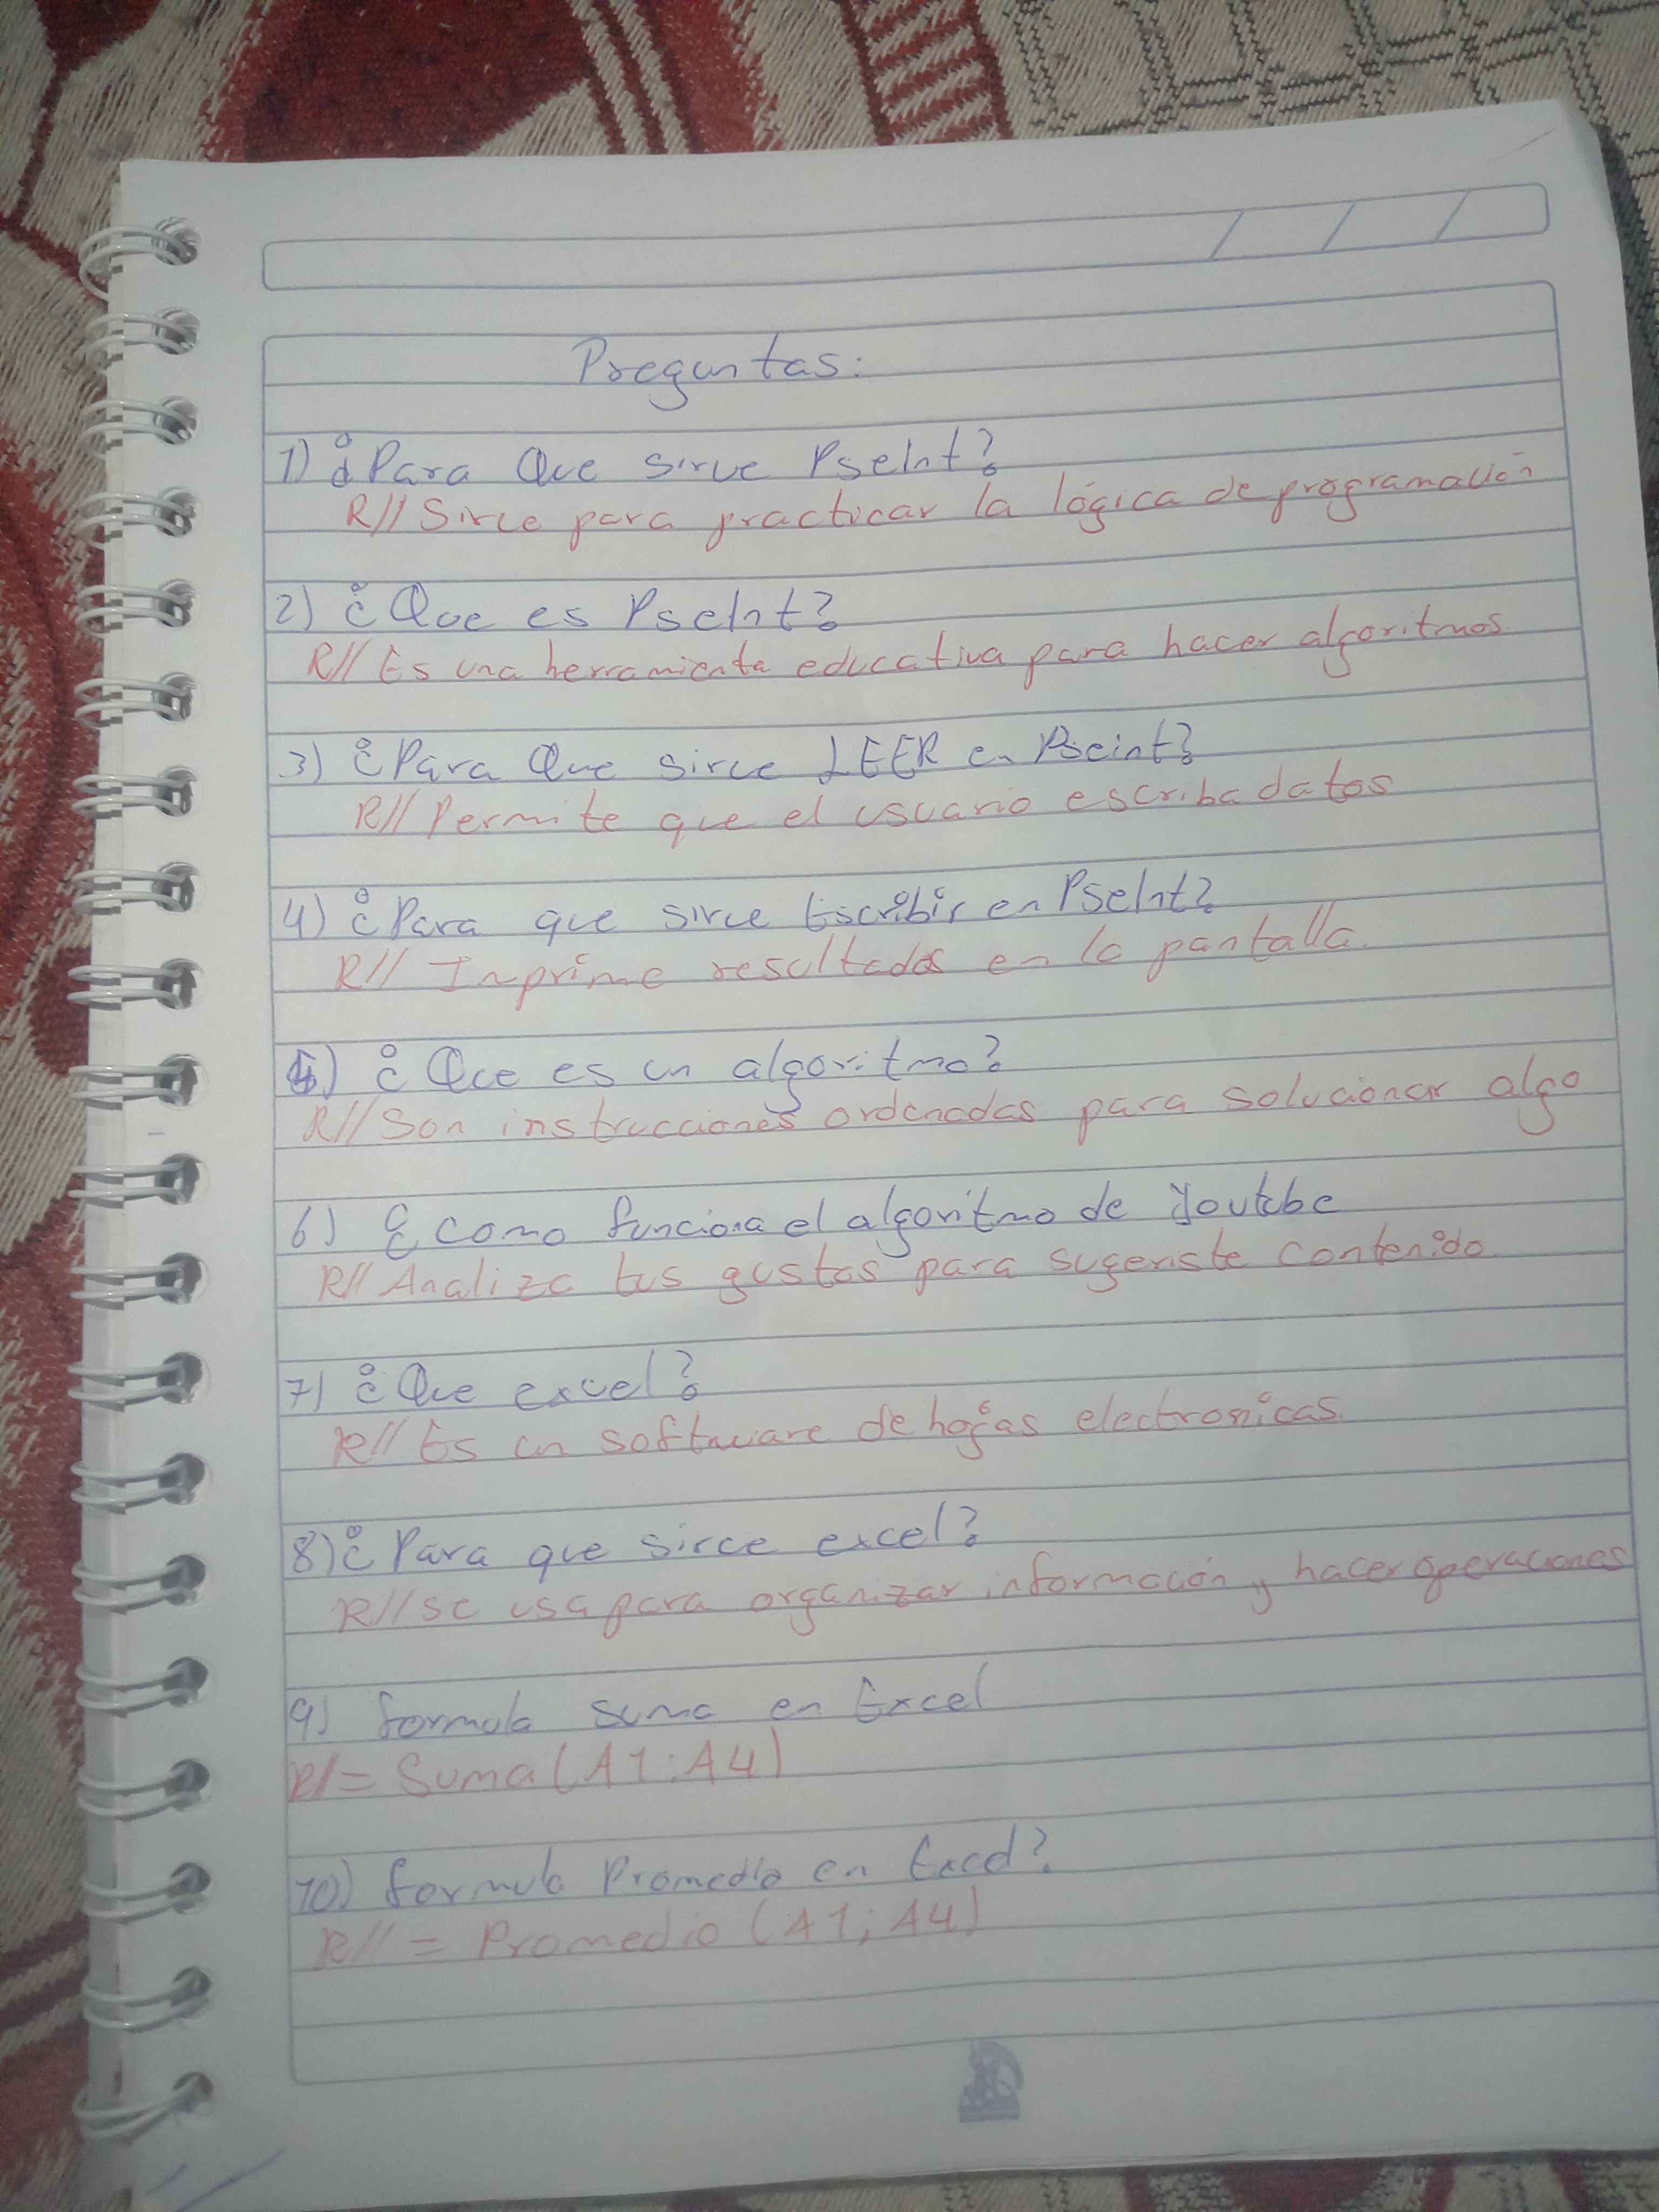 Preguntas:
1) ¿Para Que sirve PseInt?
R// Sirve para practicar la lógica de programación
2) ¿Que es PseInt?
R// Es una herramienta educativa para hacer algoritmos.
3) ¿Para Que sirve LEER en Pseint?
R// Permite que el usuario escriba datos
4) ¿Para que sirve Escribir en PseInt?
R// Imprime resultados en la pantalla.
5) ¿Que es un algoritmo?
R// Son instrucciones ordenadas para solucionar algo
6) ¿como funciona el algoritmo de Youtube
R// Analiza tus gustos para sugeriste contenido.
7) ¿Que excel?
R// Es un software de hojas electronicas.
8) ¿Para que sirve excel?
R// se usa para organizar información y hacer operaciones
9) formula suma en Excel
R/= Suma(A1:A4)
10) formula Promedio en Excel?
R// = Promedio (A1; A4)